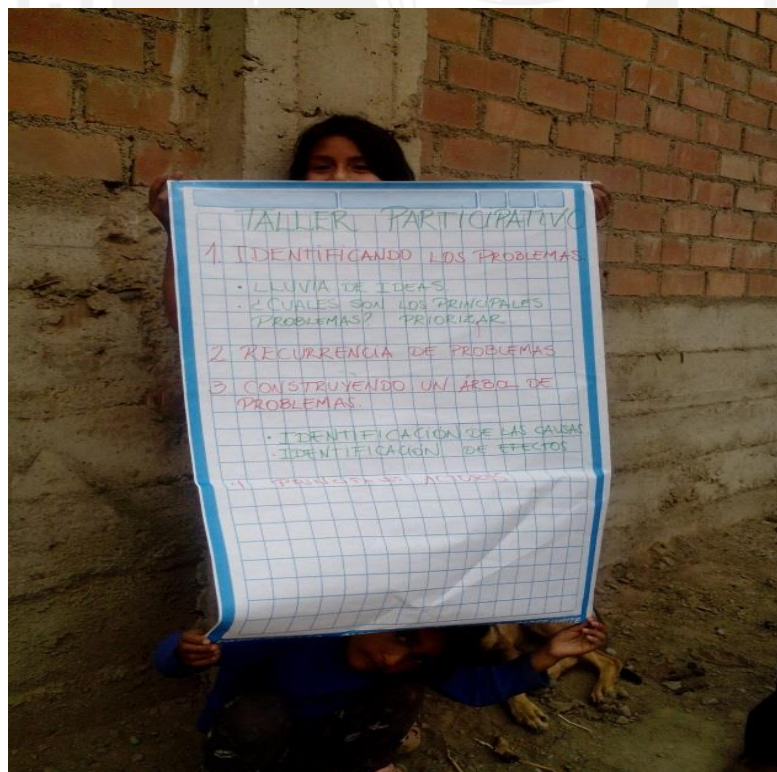 TALLER PARTICIPATIVO
1. IDENTIFICANDO LOS PROBLEMAS
• LLUVIA DE IDEAS.
• ¿CUALES SON LOS PRINCIPALES
PROBLEMAS? PRIORIZAR
2 RECURRENCIA DE PROBLEMAS
3 CONSTRUYENDO UN ÁRBOL DE
PROBLEMAS.
• IDENTIFICACIÓN DE LAS CAUSAS
• IDENTIFICACIÓN DE EFECTOS
4. PRINCIPALES ACTORES